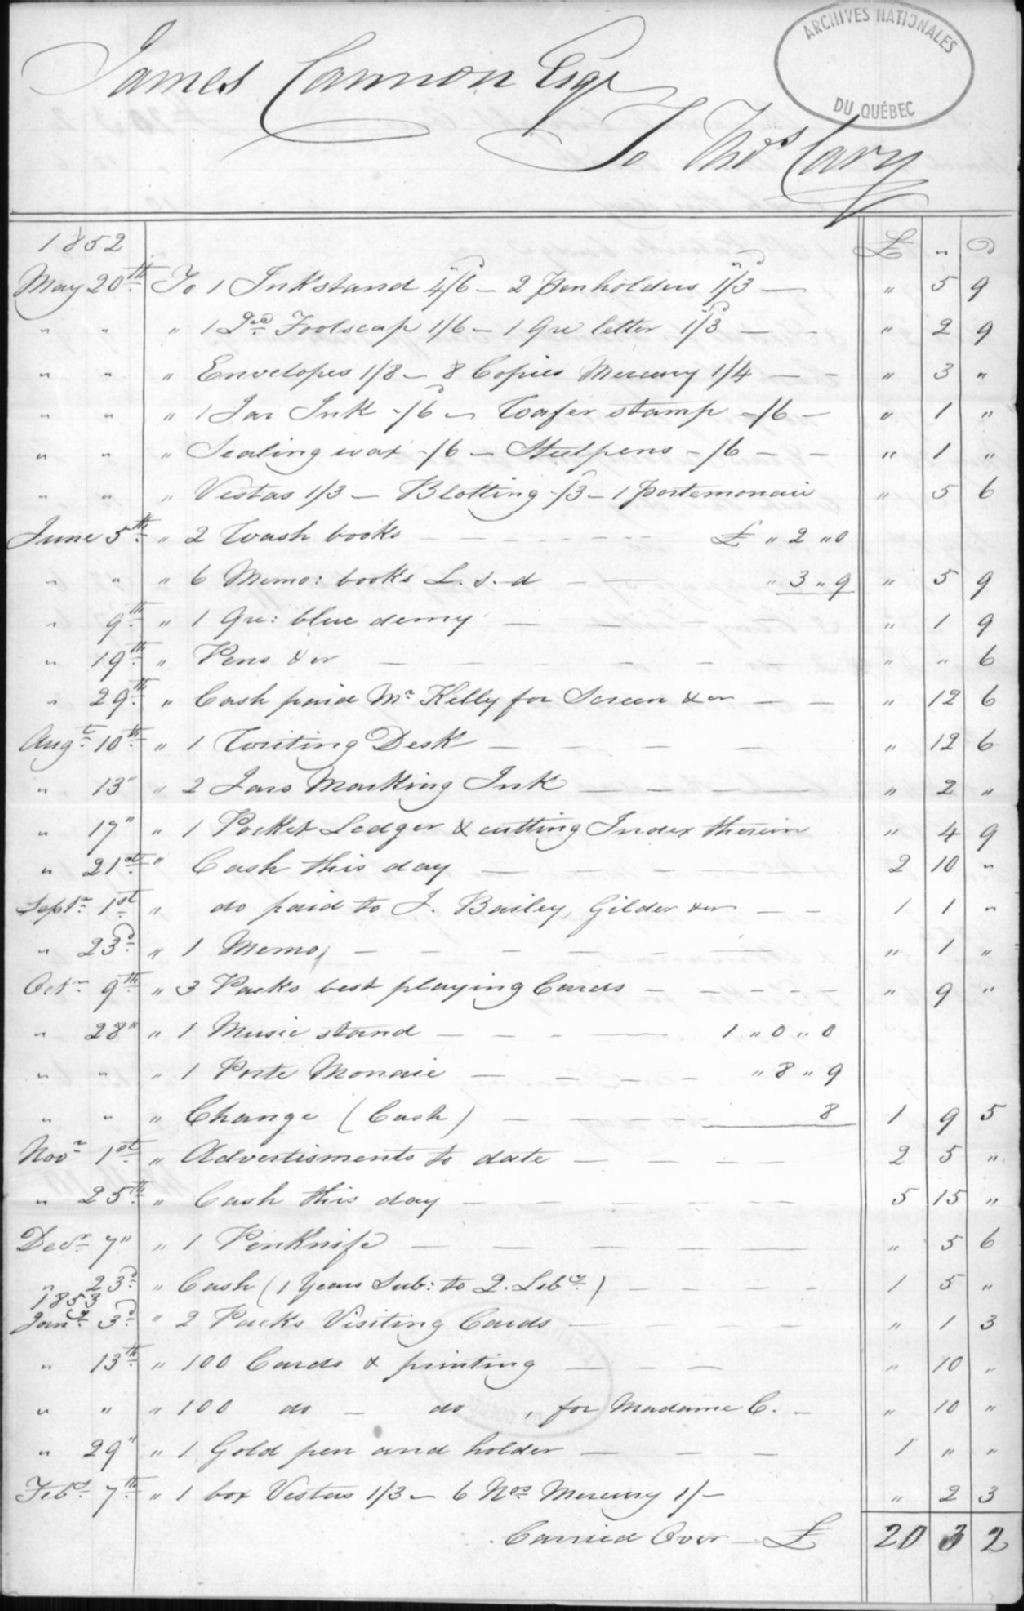 ARCHIVES NATIONALES
DU QUÉBEC
James Cannon Esqr
To Thos Cary
1852 £ " D
May 20th To 1 Inkstand 4/6 – 2 Penholders 1/3 — " 5 9
" " " 1 Foolscap 1/6 – 1 Qre letter 1/3 — — " 2 9
" " " Envelopes 1/8 – 8 Copies Mercury 1/4 — — " 3 "
" " " 1 Jar Ink -/6 – Wafer stamp -/6 — " 1 "
" " " Sealing wax -/6 – Steelpens -/6 — — " 1 "
" " " Vestas 1/3 – Blotting -/3 – 1 Portemonaie " 5 6
June 5th " 2 Wash books — — — £ " 2 " 0
" " " 6 Memo: books L. s. d — — " 3 " 9 " 5 9
" 9th " 1 Qre: blue demy — — " 1 9
" 19th " Pens &cr — — — " " 6
" 29th " Cash paid Mr Kelly for Screen &cr — — " 12 6
Augt 10th " 1 Writing Desk — — — " 12 6
" 13" " 2 Jars Marking Ink — — — " 2 "
" 17" " 1 Pocket Ledger & cutting Index therein " 4 9
" 21st " Cash this day — — — 2 10 "
Septr 1st " do paid to J. Bailey, Gilder &cr — — 1 1 "
" 23d " 1 Memo, — — — " 1 "
Octr 9th " 3 Packs best playing Cards — — — " 9 "
" 28" " 1 Music stand — — — 1 " 0 " 0
" " " 1 Porte Monaie — — — " 8 " 9
" " " Change (Cash) — — 8 1 9 5
Novr 1st " Advertisments to date — — — 2 5 "
" 25th " Cash this day — — — 5 15 "
Decr 7" " 1 PenKnife — — — " 5 6
" 23d " Cash (1 Years Sub: to Q. Liby) — — — 1 5 "
1853
Jany 3d " 2 Packs Visiting Cards — — — " 1 3
" 13th " 100 Cards & printing — — — " 10 "
" " " 100 do – do " for Madame C. – " 10 "
" 29" " 1 Gold pen and holder — — — 1 " "
Feby 7th " 1 box Vestas 1/3 – 6 Nos Mercury 1/- " 2 3
Carried Over — £ 20 3 2